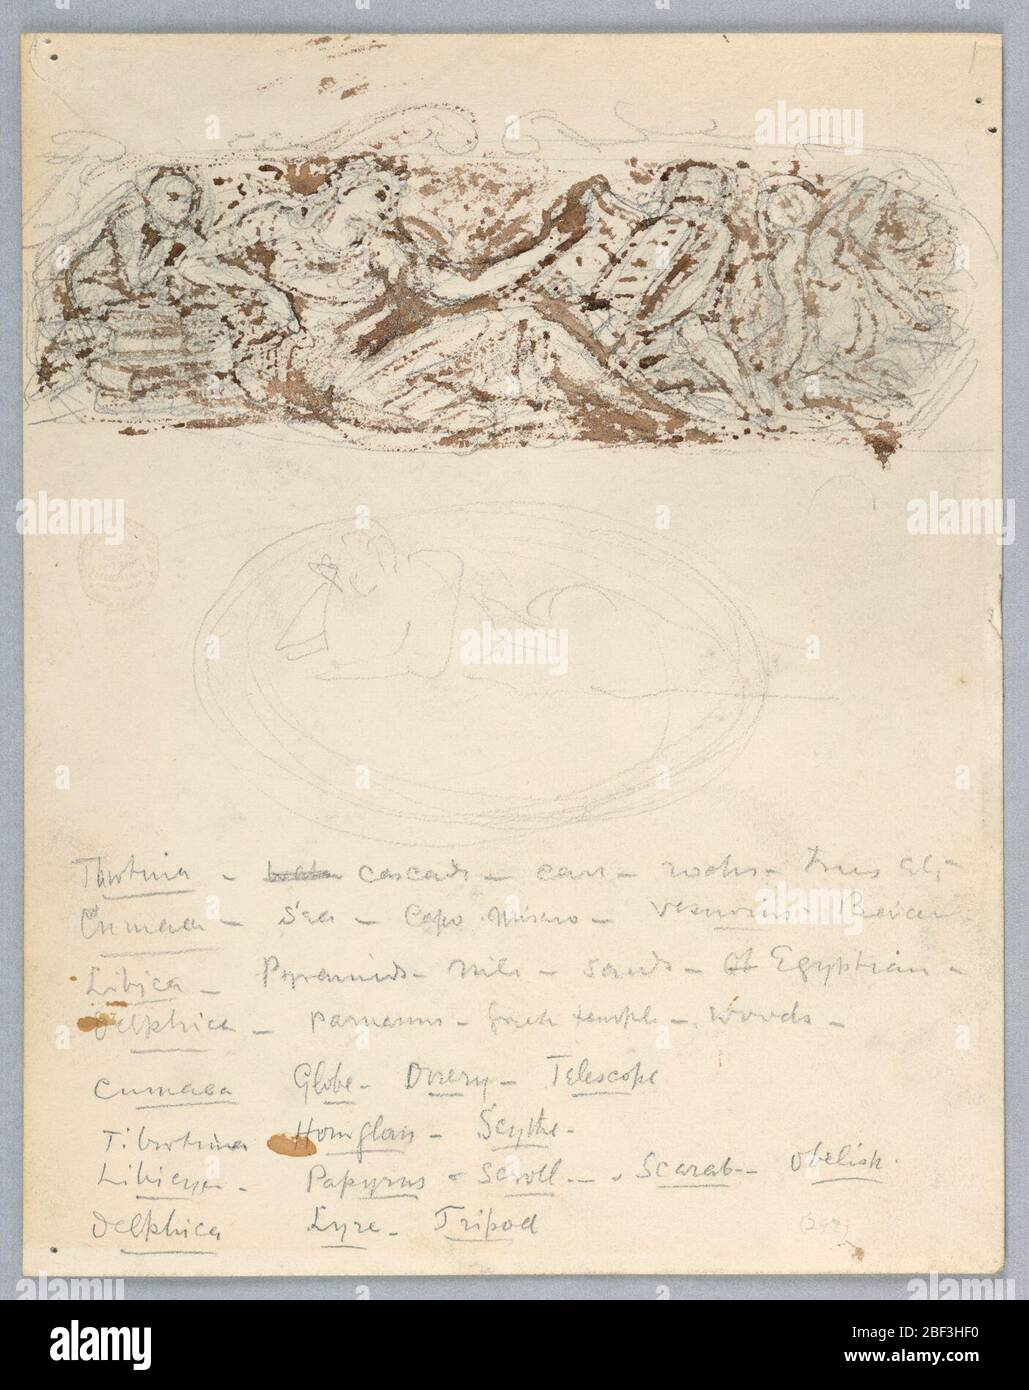 Tiburtina - cascade - cave - rocks - trees
Cumaea - Sea - Capo Miseno - Vesuvius - Baiae -
Libica - Pyramids - Nile - Sands - Egyptian -
Delphica - Parnassus - Greek temple - Woods -
Cumaea Globe - Telescope
Tiburtina Hourglass - Scythe -
Papyrus - Scroll - Scarab - Obelisk
Delphica Lyre - Tripod
(292)
alamy
a
alamy
Image ID: 2BF3HF0
www.alamy.com